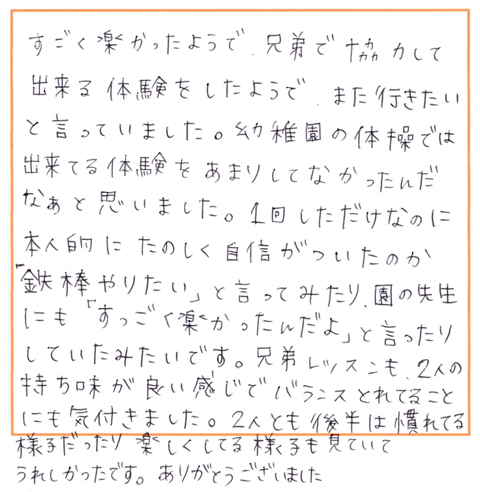 すごく楽かったようで、兄弟で協力して
出来る体験をしたようで、また行きたい
と言っていました。幼稚園の体操では
出来てる体験をあまりしてなかったんだ
なぁと思いました。1回しただけなのに
本人的にたのしく自信がついたのか
「鉄棒やりたい」と言ってみたり、園の先生
にも「すっごく楽かったんだよ」と言ったり
していたみたいです。兄弟レッスンも、2人の
持ち味が良い感じでバランスとれてること
にも気付きました。2人とも後半は慣れてる
様子だったり楽しくしてる様子も見ていて
うれしかったです。ありがとうございました